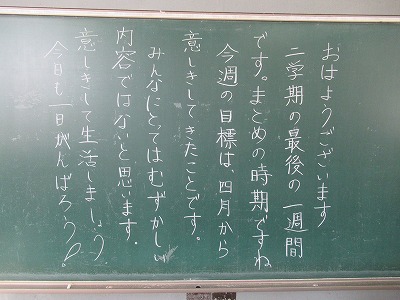 おはようございます
二学期の最後の一週間
です。まとめの時期ですね
今週の目標は、四月から
意しきしてきたことです。
みんなにとってはむずかしい
内容ではないと思います。
意しきして生活しましょう
今日も一日がんばろう!